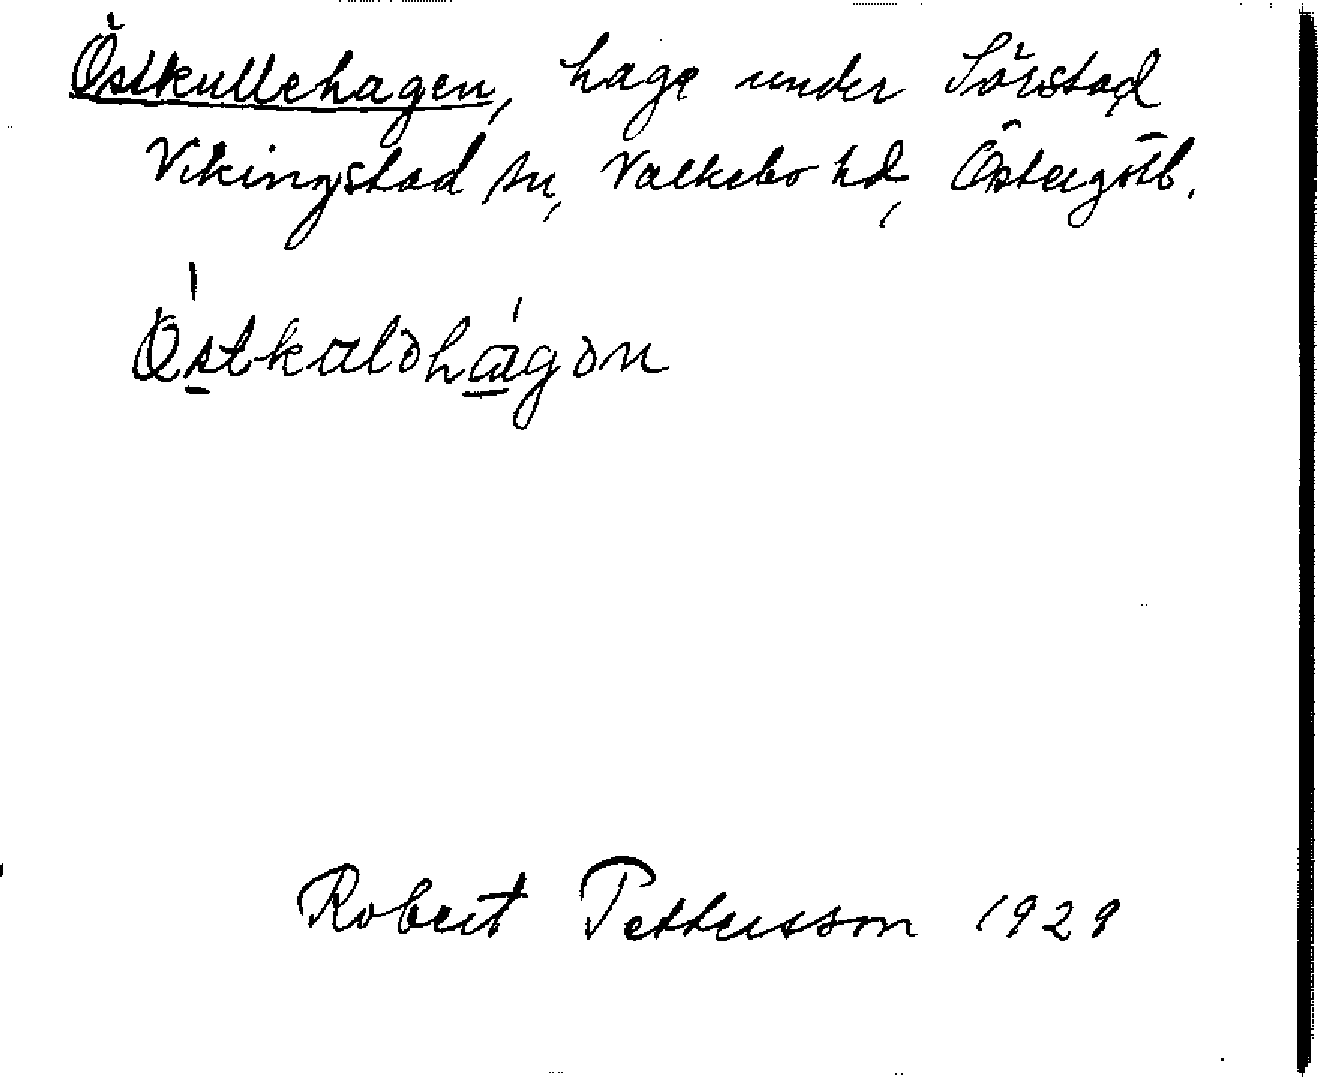 Östkullehagen, hage under Sörstad
Vikingstad sn, Valkebo hd, Östergötl.
Robert Pettersson 1929